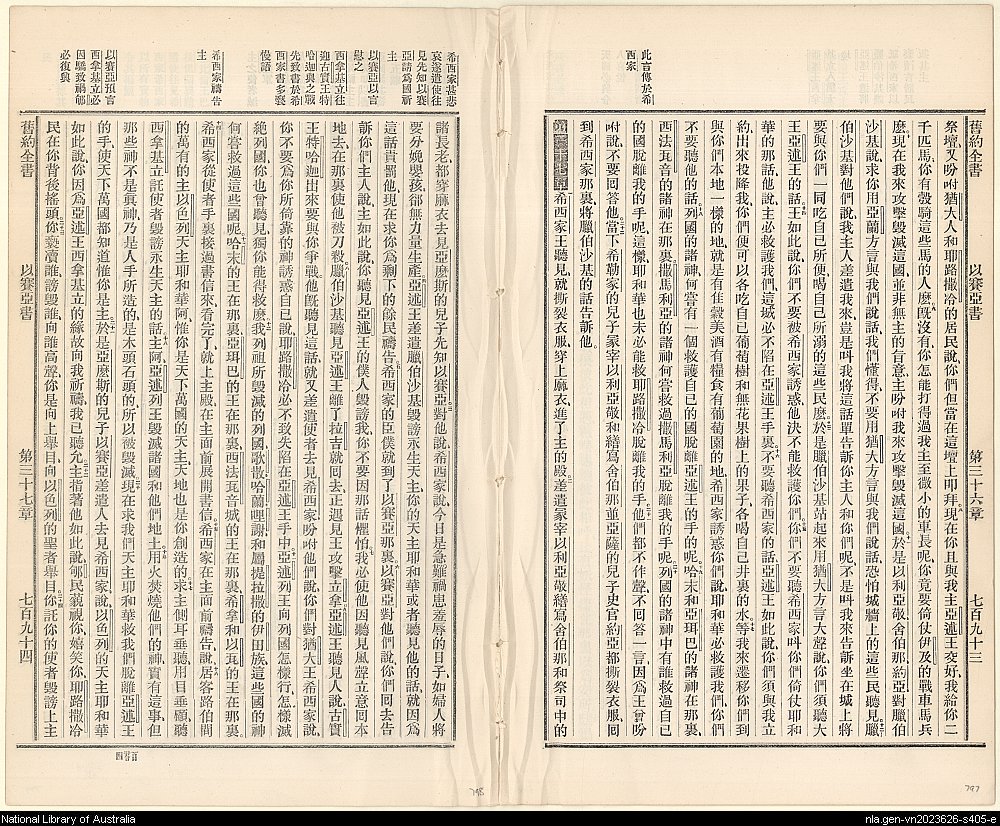 此言傳於希
西家
舊約全書 以賽亞書 第三十六章 七百九十三
祭壇又吩咐猶大人和耶路撒冷的居民說你們但當在這壇上叩拜現在你且與我主亞述王交好我給你二
千匹馬你有彀騎這些馬的人麼旣沒有你怎能打得過我主至微小的車長呢你竟要倚仗伊及的戰車馬兵
麼現在我來攻擊毀滅這國並非無主的旨意主吩咐我來攻擊毀滅這國於是以利亞敬舍伯那約亞對臘伯
沙基說求你用亞蘭方言與我們說話我們懂得不要用猶大方言與我們說話恐怕城牆上的這些民聽見臘
伯沙基對他們說我主人差遣我來豈是叫我將這話單告訴你主人和你們呢不是叫我來告訴坐在城上將
要與你們一同吃自己所便喝自己所溺的這些民麼於是臘伯沙基站起來用猶大方言大聲說你們須聽大
王亞述王的話王如此說你們不要被希西家誘惑他決不能救護你們你們不要聽希西家叫你們倚仗耶和
華的那話他說主必救護我們這城必不陷在亞述王手裏不要聽希西家的話亞述王如此說你們須與我立
約出來投降我你們便可以各吃自己葡萄樹和無花果樹上的果子各喝自己井裏的水等我來遷移你們到
與你們本地一樣的地就是有穀美酒有糧食有葡萄園的地希西家誘惑你們說耶和華必救護我們你們
不要聽他的話列國的諸神何嘗有一個救護自己的國脫離亞述王的手的呢哈末和亞珥巴的諸神在那裏
西法瓦音的諸神在那裏撒馬利亞的諸神何嘗救過撒馬利亞脫離我的手呢列國的諸神中有誰救過自己
的國脫離我的手呢這樣耶和華也未必能救耶路撒冷脫離我的手他們都不作聲不回答一言因爲王曾吩
咐說不要回答他當下希勒家的兒子冡宰以利亞敬和繕寫舍伯那並亞薩的兒子史官約亞都撕裂衣服回
到希西家那裏將臘伯沙基的話告訴他
第三十七章希西家王聽見就撕裂衣服穿上麻衣進了主的殿差遣冡宰以利亞敬繕寫舍伯那和祭司中的
797
希西家甚悲
哀遂遣使往
見先知以賽
亞請爲國祈
主
以賽亞以言
慰之
西拿基立往
迎古實王特
哈迦與之戰
先致書於希
西家書多褻
慢語
希西家禱告
主
以賽亞預言
西拿基立必
因驕致禍郇
必復興
諸長老都穿麻衣去見亞麽斯的兒子先知以賽亞對他說希西家說今日是急難禍患羞辱的日子如婦人將
要分娩嬰孩卻無力量生產亞述王差遣臘伯沙基毀謗永生天主你的天主耶和華或者聽見他的話就因爲
這話責罰他現在求你爲剩下的餘民禱告希西家的臣僕就到了以賽亞那裏以賽亞對他們說你們回去告
訴你們主人說主如此說你聽見亞述王的僕人毀謗我你不要因那話懼怕我必使他因聽見風聲立意回本
地去在那裏使他被刀殺臘伯沙基聽見亞述王離了拉吉就回去正遇見王攻擊立拿亞述王聽見人說古實
王特哈迦出來要與你爭戰他旣聽見這話就又差遣使者去見希西家吩咐他們說你們對猶大王希西家說
你不要爲你所倚靠的神誘惑自己說耶路撒冷必不致失陷在亞述王手中亞述列王向列國怎樣行怎樣滅
絕列國你也曾聽見獨你能得救麼我列祖所毀滅的列國歌散哈蘭哩謝和屬提拉撒的伊田族這些國的神
何嘗救過這些國呢哈末的王在那裏亞珥巴的王在那裏西法瓦音城的王在那裏希拿和以瓦的王在那裏
希西家從使者手裏接過書信來看完了就上主殿在主面前展開書信希西家在主面前禱告說居客路伯間
的萬有的主以色列天主耶和華阿惟你是天下萬國的天主天地也是你創造的求主側耳垂聽用目垂顧聽
西拿基立託使者毀謗永生天主的話主阿亞述列王毀滅諸國和他們地土用火焚燒他們的神實有這事但
那些神不是眞神乃是人手所造的是木頭石頭的所以被毀滅現在求我們天主耶和華救我們脫離亞述王
的手使天下萬國都知道惟你是主於是亞麽斯的兒子以賽亞差遣人去見希西家說以色列的天主耶和華
如此說你因爲亞述王西拿基立的緣故向我祈禱我已聽允主指著他如此說郇民藐視你嬉笑你耶路撒冷
民在你背後搖頭你褻瀆誰毀謗誰向誰高聲你是向上舉目向以色列的聖者舉目你託你的使者毀謗上主
舊約全書 以賽亞書 第三十七章 七百九十四
798
National Library of Australia
nla.gen-vn2023626-s405-e